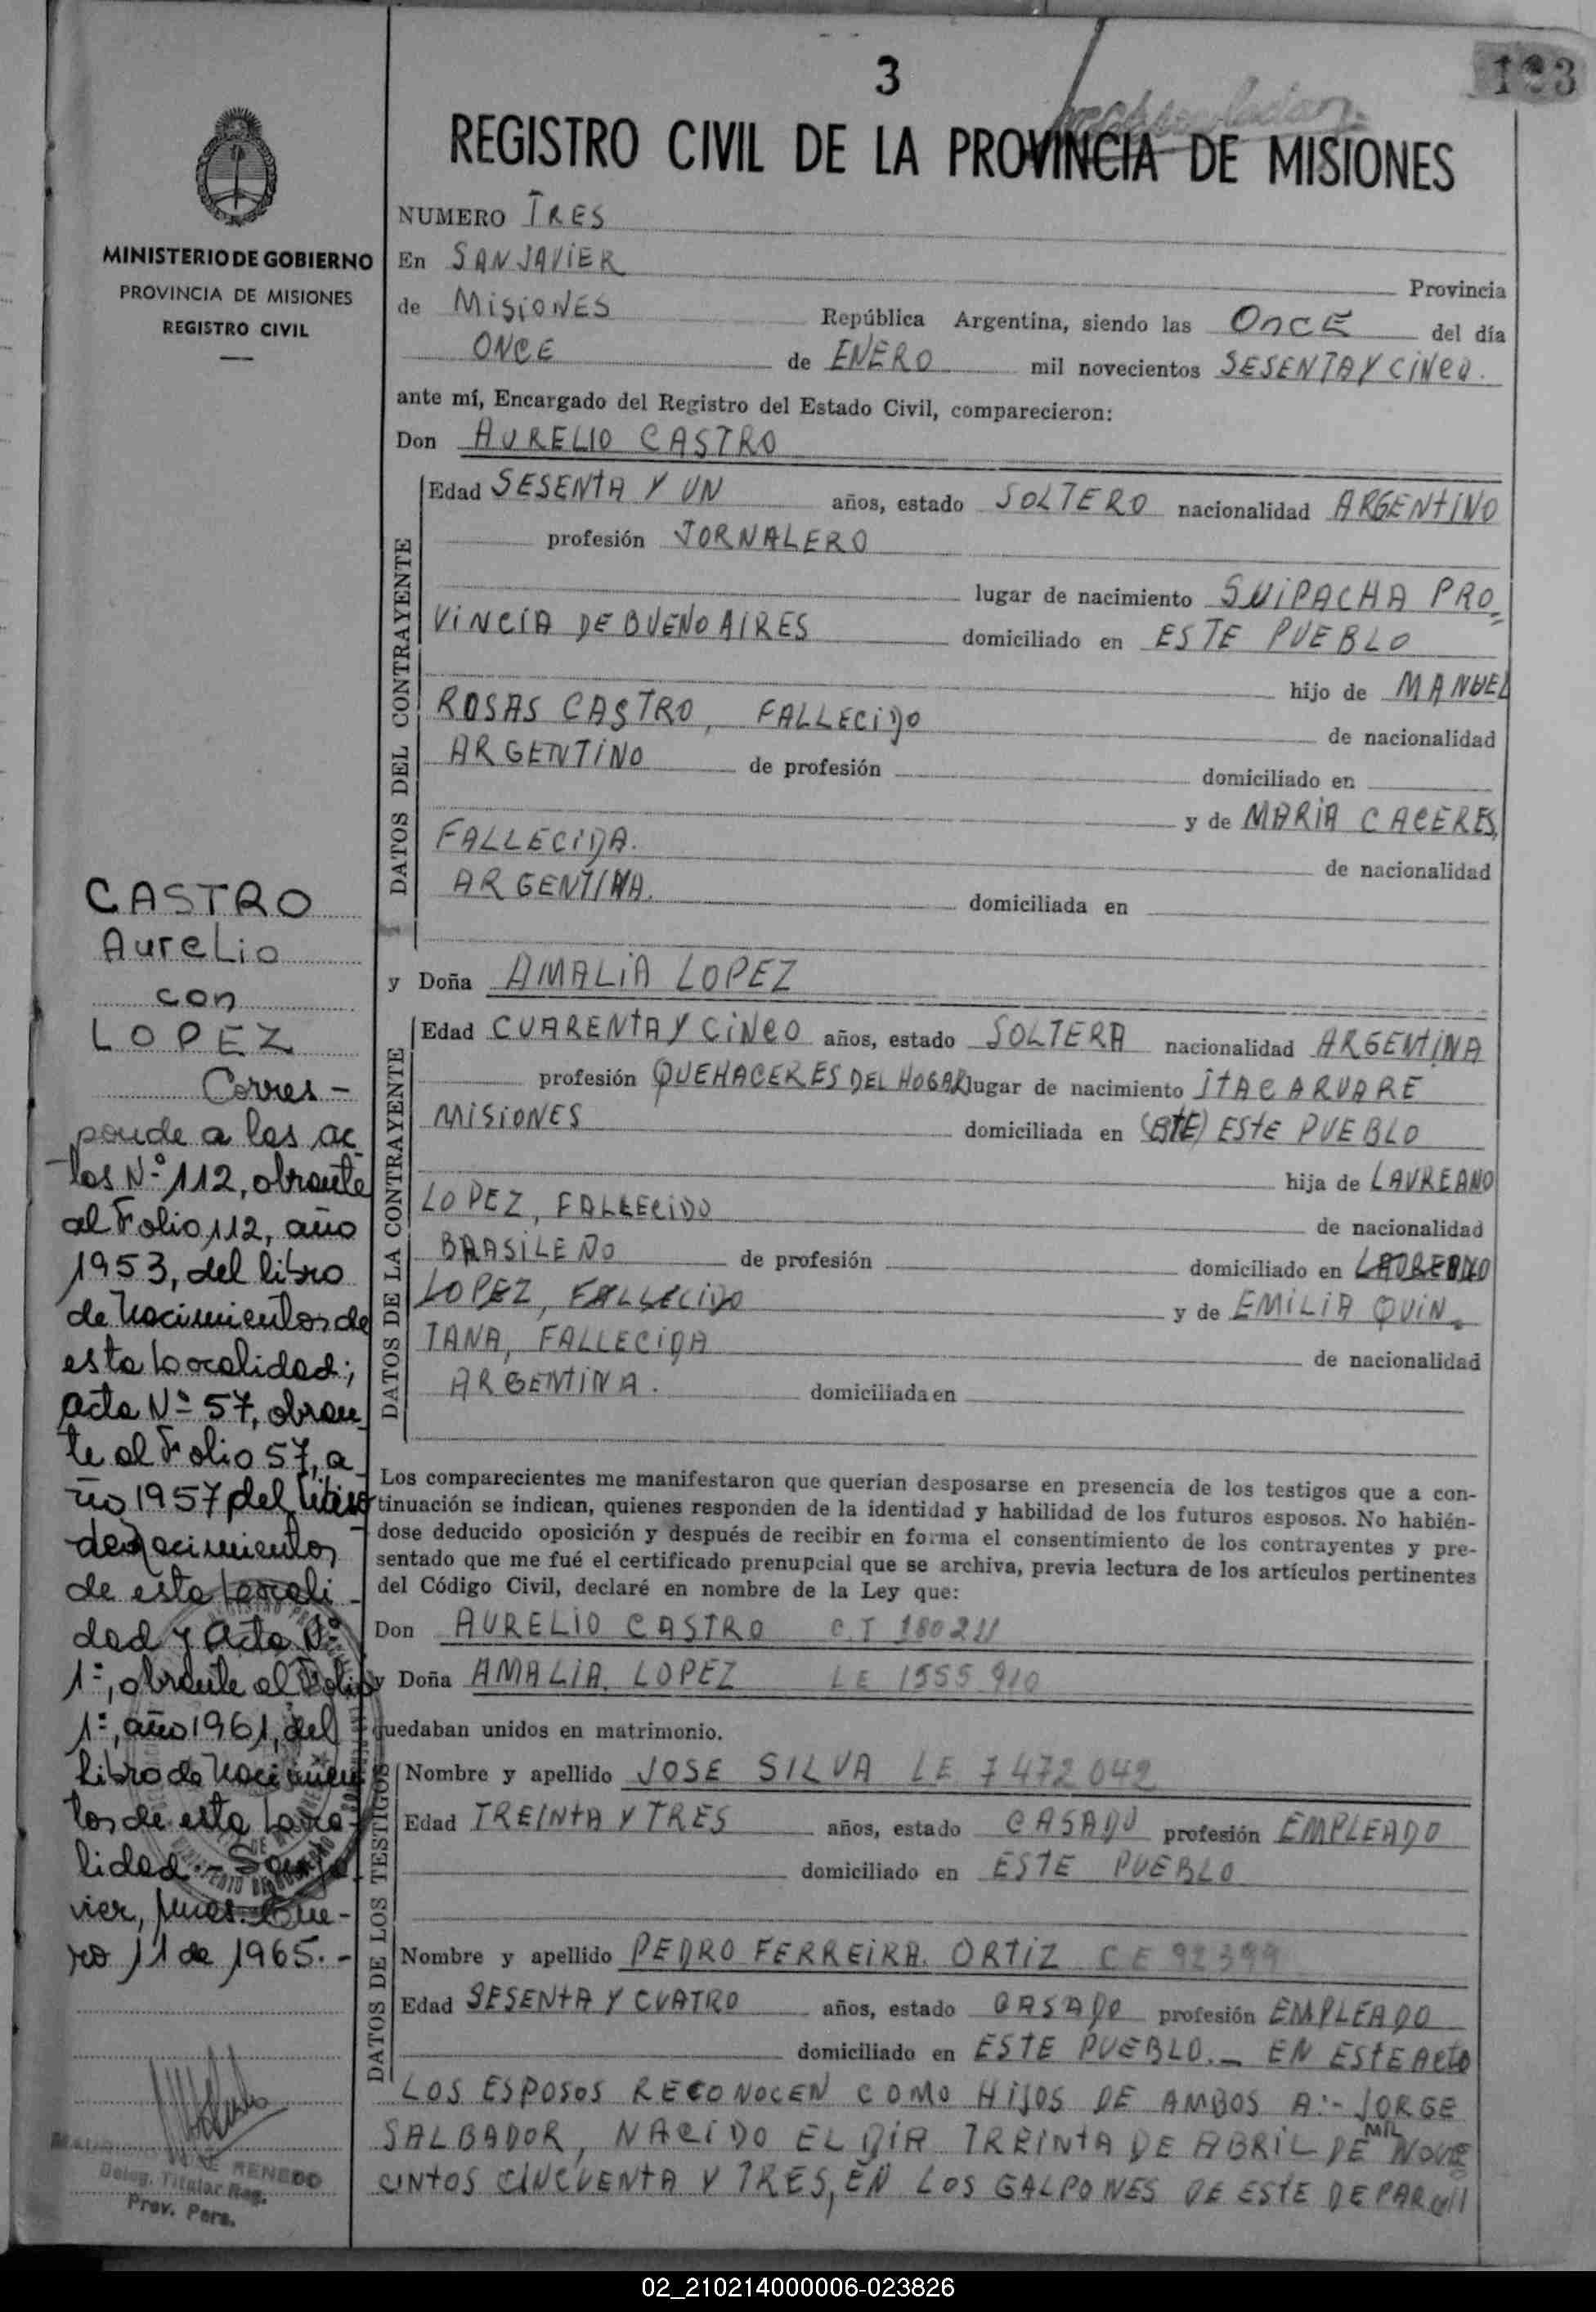 3
123
REGISTRO CIVIL DE LA PROVINCIA DE MISIONES
MINISTERIO DE GOBIERNO
PROVINCIA DE MISIONES
REGISTRO CIVIL
NUMERO TRES
En SAN JAVIER
Provincia
de MISIONES República Argentina, siendo las ONCE del día
ONCE de ENERO mil novecientos SESENTA Y CINCO.
ante mí, Encargado del Registro del Estado Civil, comparecieron:
Don AURELIO CASTRO
DATOS DEL CONTRAYENTE
Edad SESENTA Y UN años, estado SOLTERO nacionalidad ARGENTINO
profesión JORNALERO
lugar de nacimiento SUIPACHA PRO=
VINCIA DE BUENO AIRES domiciliado en ESTE PUEBLO
hijo de MANUEL
ROSAS CASTRO, FALLECIDO
de nacionalidad
ARGENTINO de profesión domiciliado en
y de MARIA CACERES,
FALLECIDA.
de nacionalidad
ARGENTINA. domiciliada en
y Doña AMALIA LOPEZ
DATOS DE LA CONTRAYENTE
Edad CUARENTA Y CINCO años, estado SOLTERA nacionalidad ARGENTINA
profesión QUEHACERES DEL HOGAR lugar de nacimiento ITACARUARE
MISIONES domiciliada en ESTE PUEBLO
hija de LAUREANO
LOPEZ, FALLECIDO
de nacionalidad
BRASILEÑO de profesión domiciliado en LAUREANO
LOPEZ, FALLECIDO y de EMILIA QUIN=
TANA, FALLECIDA
de nacionalidad
ARGENTINA. domiciliada en
Los comparecientes me manifestaron que querían desposarse en presencia de los testigos que a con-
tinuación se indican, quienes responden de la identidad y habilidad de los futuros esposos. No habién-
dose deducido oposición y después de recibir en forma el consentimiento de los contrayentes y pre-
sentado que me fué el certificado prenupcial que se archiva, previa lectura de los artículos pertinentes
del Código Civil, declaré en nombre de la Ley que:
Don AURELIO CASTRO C.I 180211
y Doña AMALIA LOPEZ LE 1555910
quedaban unidos en matrimonio.
DATOS DE LOS TESTIGOS
Nombre y apellido JOSE SILVA LE 7472042
Edad TREINTA Y TRES años, estado CASADO profesión EMPLEADO
domiciliado en ESTE PUEBLO
Nombre y apellido PEDRO FERREIRA ORTIZ CE 92399
Edad SESENTA Y CUATRO años, estado CASADO profesión EMPLEADO
domiciliado en ESTE PUEBLO._ EN ESTE ACTO
LOS ESPOSOS RECONOCEN COMO HIJOS DE AMBOS A:- JORGE
SALBADOR, NACIDO EL DIA TREINTA DE ABRIL DE MIL NOVE
CINTOS CINCUENTA Y TRES, EN LOS GALPONES DE ESTE DEPAR
CASTRO
Aurelio
con
LOPEZ
Corres-
ponde a las ac-
tas Nº 112, obrante
al Folio 112, año
1953, del libro
de Nacimientos de
esta Localidad;
Acta Nº 57, obran-
te al Folio 57, a-
ño 1957 del libro
de Nacimientos
de esta Locali-
dad y Acta Nº
1º, obrante al Folio
1º, año 1961, del
libro de Nacimien-
tos de esta Loca-
lidad.- San Ja-
vier, Mnes. Ene-
ro 11 de 1965.-
JOSE RENEDO
Deleg. Titular Reg.
Prov. Pers.
02_210214000006-023826